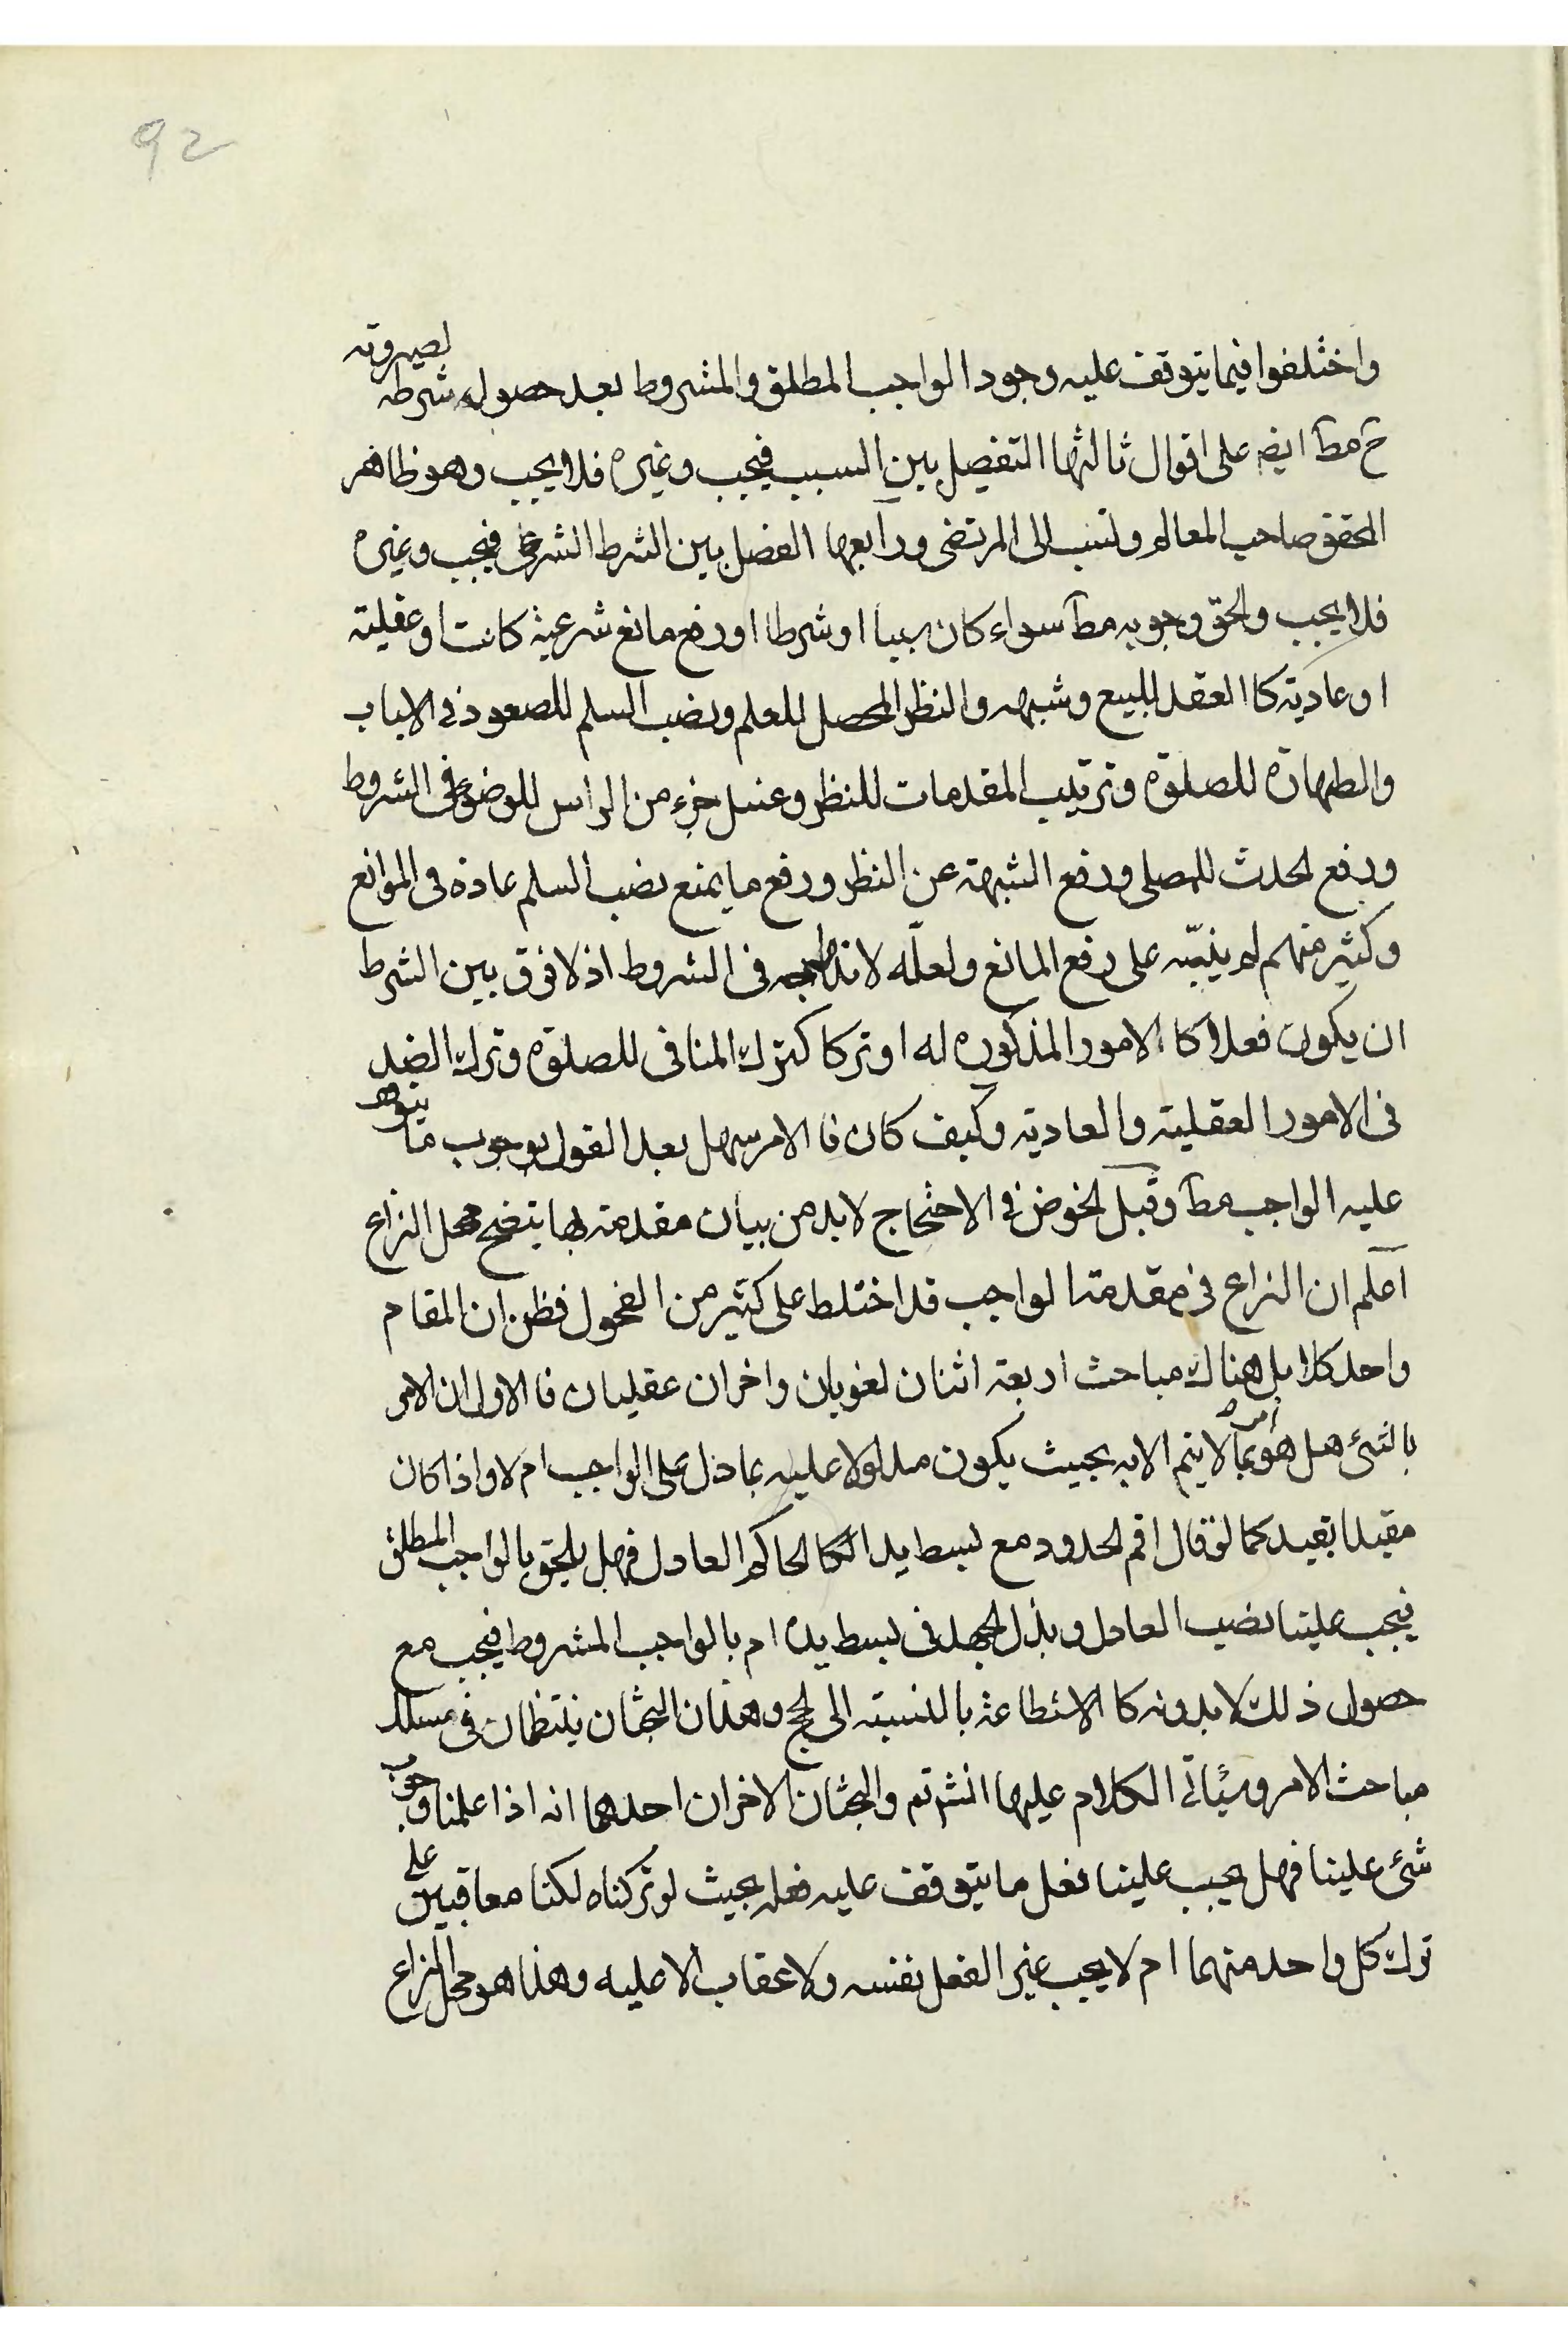 92
واختلفوا فيما يتوقف عليه وجود الواجب المطلق والمشروط بعد حصول شرطه لصيرورته
ح مط ايض على اقوال ثالثها التفصيل بين السبب فيجب وغيره فلا يجب وهو ظاهر
المحقق صاحب المعالم ونسب الى المرتضى ورابعها الفصل بين الشرط الشرعى فيجب وغيره
فلا يجب والحق وجوبه مط سواء كان سببا او شرطا او رفع مانع شرعية كانت او عقلية
او عادية كا العقد للبيع وشبهه والنظر المحصل للعلم ونصب السلم للصعود فى الاسباب
والطهارة للصلوة وترتيب المقدمات للنظر وغسل جزء من الراس للوضوء فى الشروط
ورفع الحدث للمصلى ورفع الشبهة عن النظر ورفع ما يمنع نصب السلم عادة فى الموانع
وكثير منهم لم ينبّه على رفع المانع ولعله لاندراجه فى الشروط اذ لا فرق بين الشرط
ان يكون فعلا كا الامور المذكورة له او تركا كترك المنافى للصلوة وترك الضد
فى الامور العقلية والعادية وكيف كان فا الامر سهل بعد القول بوجوب ما يتوقف
عليه الواجب مط وقبل الخوض فى الاحتجاج لابد من بيان مقدمة بها يتضح محل النزاع
اعلم ان النزاع فى مقدمة الواجب قد اختلط على كثير من الفحول فظن ان المقام
واحد كلا بل هناك مباحث اربعة اثنان لغويان واخران عقليان فا الاول ان الامر
بالشئ هل هو امر بما لا يتم الا به بحيث يكون مدلولا عليه بما دل على الواجب ام لا واذا كان
مقيدا بقيد كما لو قال اقم الحدود مع بسط يد الحاكم العادل فهل يلحق بالواجب المطلق
فيجب علينا نصب العادل وبذل الجهد فى بسط يده ام بالواجب المشروط فيجب مع
حصول ذلك لا بدونه كا الاستطاعة بالنسبة الى الحج وهذان البحثان ينتظمان فى مسلك
مباحث الامر وسيأتى الكلام عليها انشاء تع والبحثان الاخران احدهما انه اذا علمنا وجوب
شئ علينا فهل يجب علينا فعل ما يتوقف عليه فعله بحيث لو تركناه لكنا معاقبين على
ترك كل واحد منهما ام لا يجب غير الفعل نفسه ولا عقاب الا عليه وهذا هو محل النزاع